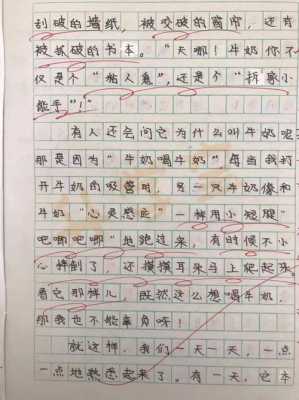 刮破的墙纸，被咬破的窗帘，还有
被抓破的书本。“天哪！牛奶你不
仅是个“粘人惫”，还是个“拆家小
能手”！”
有人还会问它为什么叫牛奶呢
那是因为“牛奶喝牛奶”，每当我打
开牛奶的吸管时，另一只牛奶像和
牛奶“心灵感应”一样用小短腿“
吧唧吧唧”地跑过来，有时候不小
心摔倒了，还摸摸耳朵马上爬起来
看它那样儿，既然这么想喝牛奶，
那我也不能辜负呀！
就这样，我们一天一天，一点
一点地熟悉起来了。有一天，它本